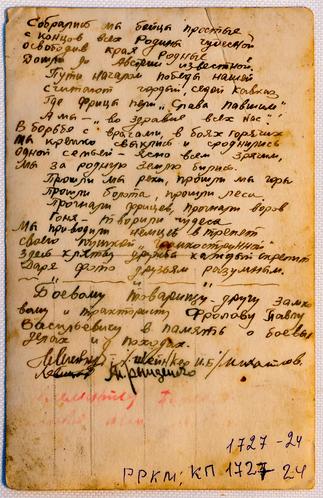 Собрались мы бойца простые
с концов всех Родины чудесной
освободив края родные
Дошли до Австрии известной.
Пути началом победы нашей
Считают гордый, седой Кавказ
Где фрицы пели „Слава павшим"
А мы – „во здравие всех нас"!
В борьбе с врагами, в боях горячих
Мы крепко свыклись и сроднились
Одной семьей – Ясно всем зрячим,
Мы за родную Землю бились.
Прошли мы реки, прошли мы горы
Прошли болота, прошли леса
Прогнали фрицев, прогнали воров
Гоня – творили чудеса
Мы приводили немцев в трепет
своею пушкой
Здесь клятву дружбы каждый скрепит
Даря фото друзьям разумным.
Боевому товарищу другу
и трактористу Фролову Павлу
Васильевичу в память о боевых
делах и походах.
1727-24
РРКМ, КП 1727 24